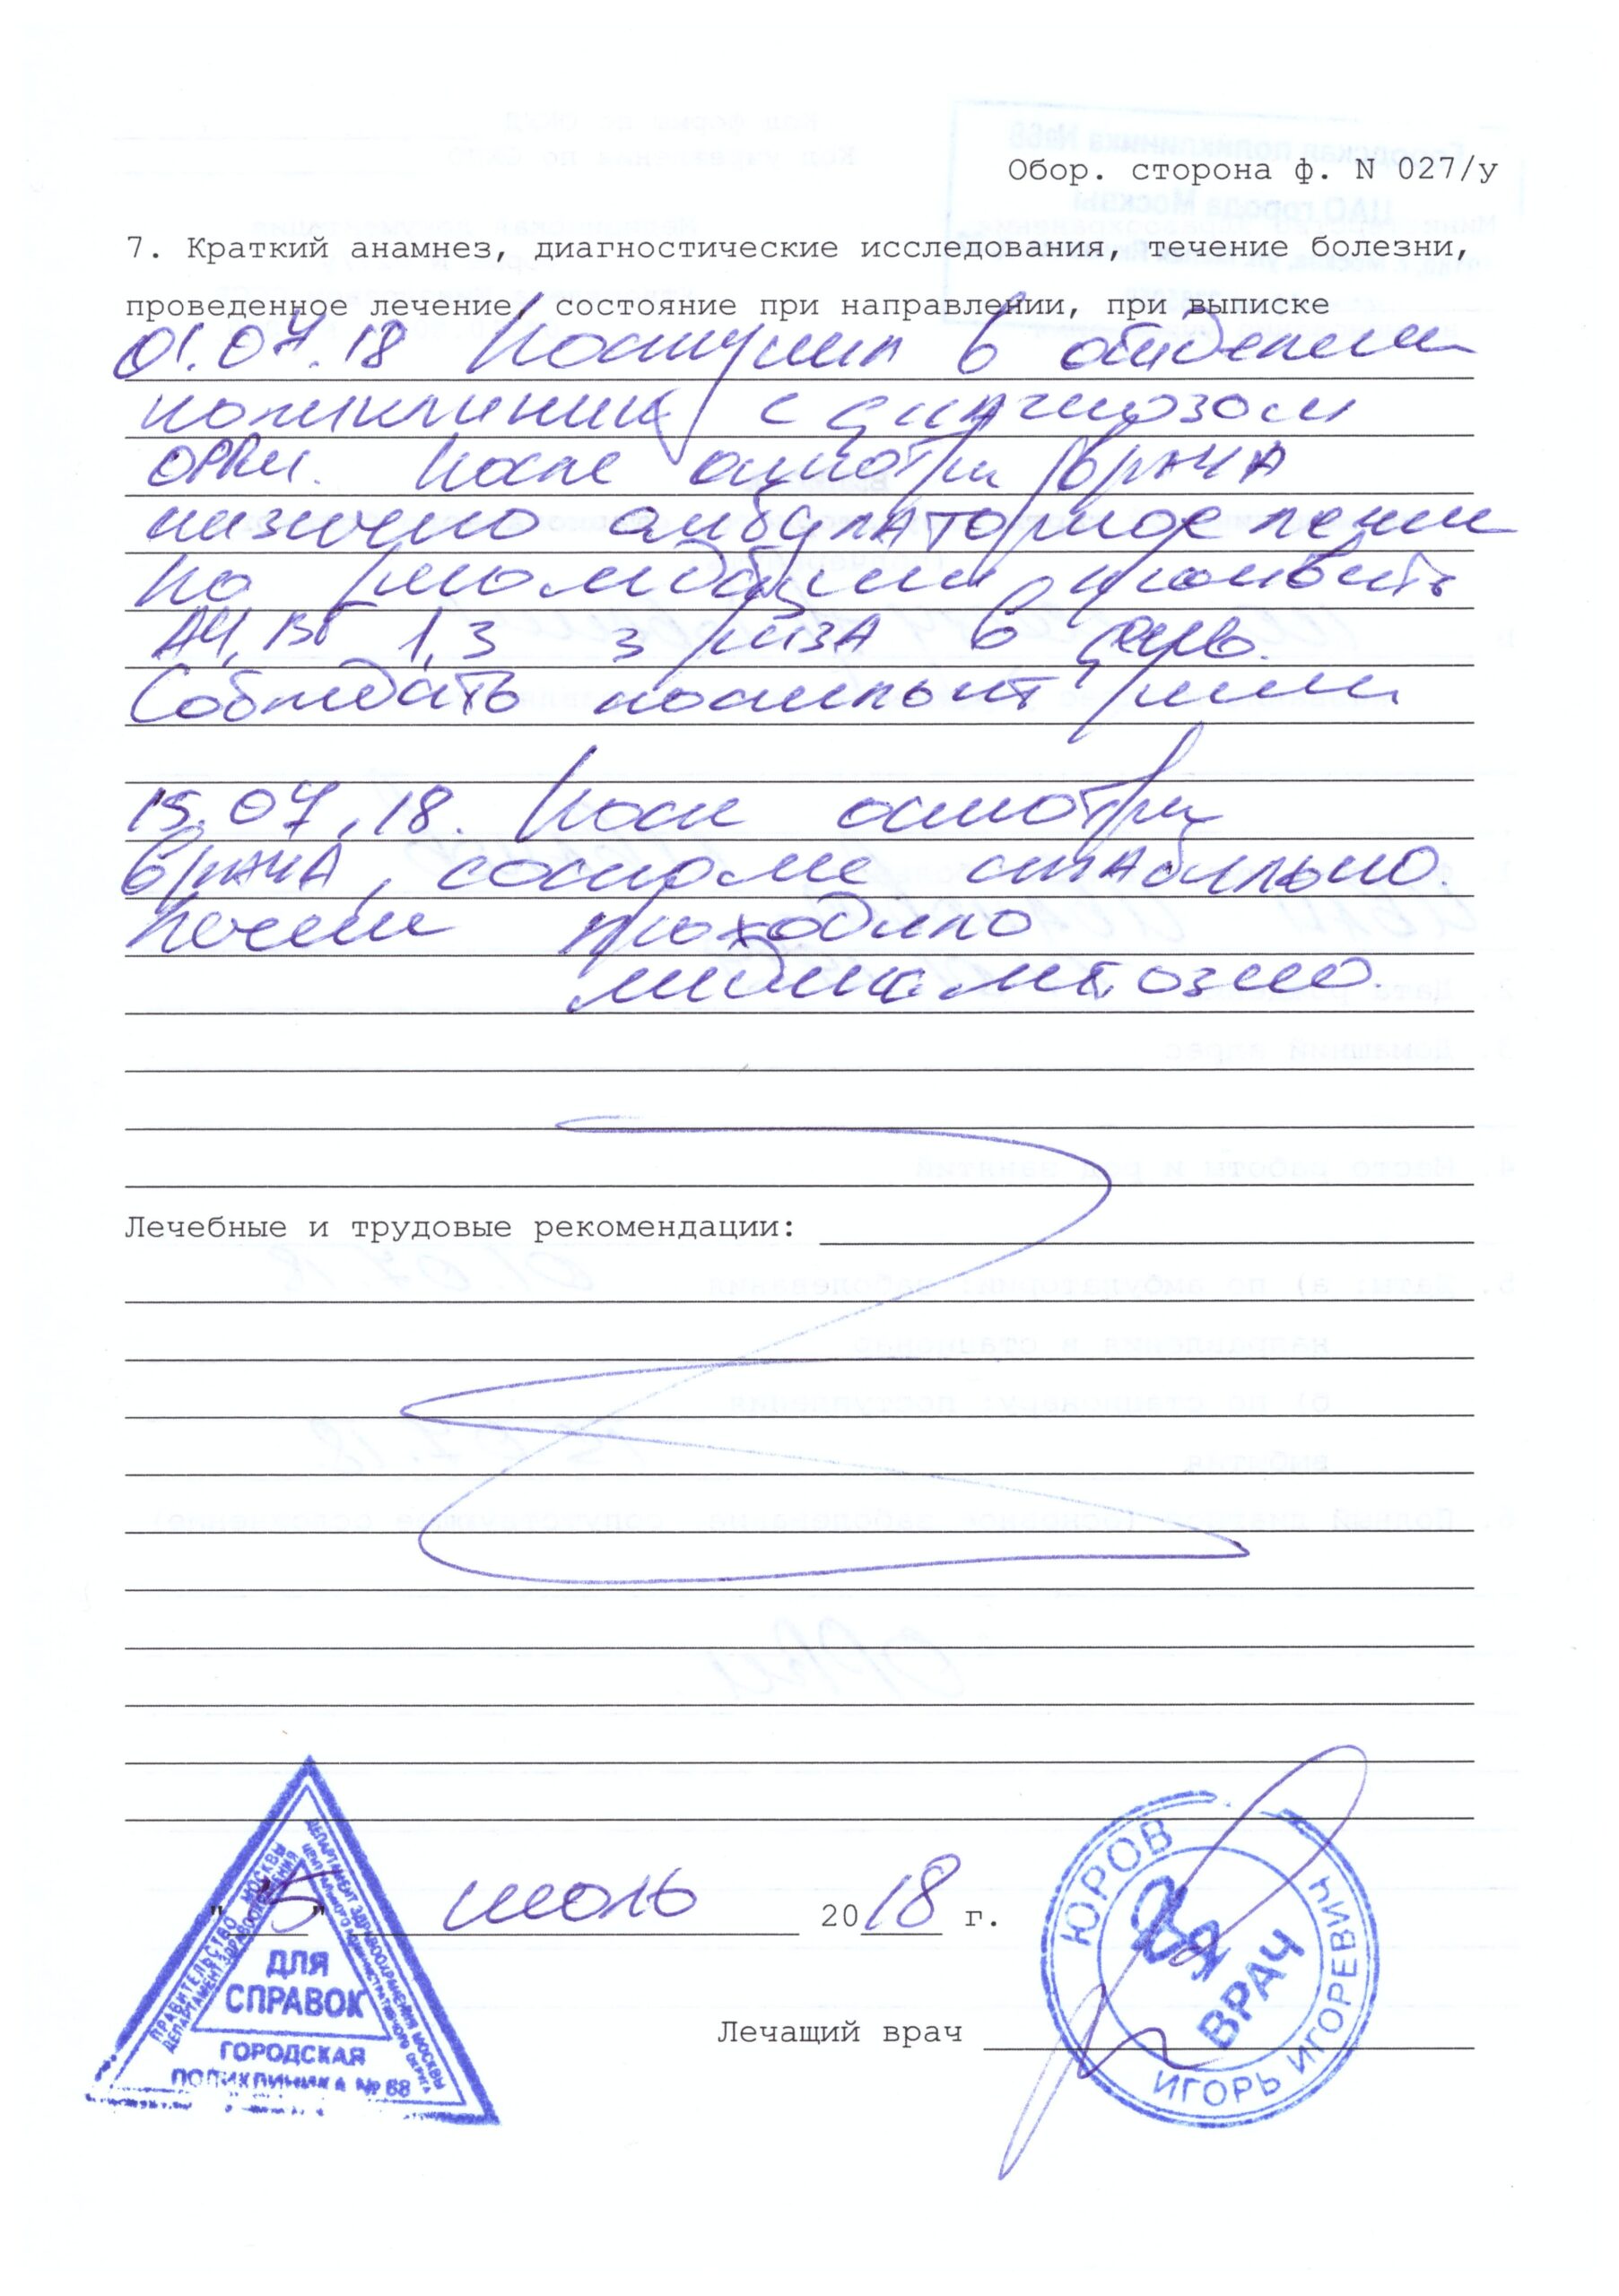 Обор. сторона ф. N 027/у
7. Краткий анамнез, диагностические исследования, течение болезни,
проведенное лечение, состояние при направлении, при выписке
01.07.18 Поступил в отделение
поликлиники с диагнозом
ОРВИ. После осмотра врача
назначено амбулаторное
по
1,3 3 раза в день.
Соблюдать режим
15.07.18. После осмотра
врача, стабильно.
проходило
медикаментозно.
Лечебные и трудовые рекомендации:
"15" июль 2018 г.
Лечащий врач
ПРАВИТЕЛЬСТВО МОСКВЫ
ДЕПАРТАМЕНТ ЗДРАВООХРАНЕНИЯ
ДЕПАРТАМЕНТ ЗДРАВООХРАНЕНИЯ МОСКВЫ
ЦЕНТРАЛЬНОГО АДМИНИСТРАТИВНОГО ОКРУГА
ДЛЯ
СПРАВОК
ГОРОДСКАЯ
ПОЛИКЛИНИКА № 68
ЮРОВ
ИГОРЬ ИГОРЕВИЧ
ВРАЧ